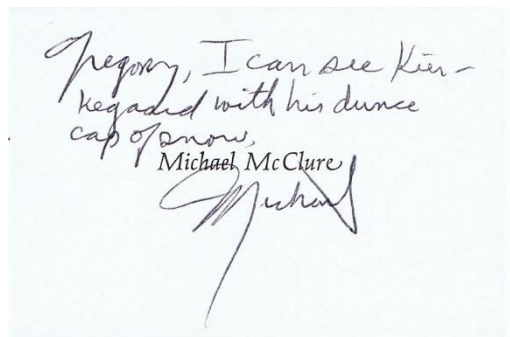 Gregory, I can see Kier-
kegaard with his dunce
cap of snow,
Michael McClure
Michael